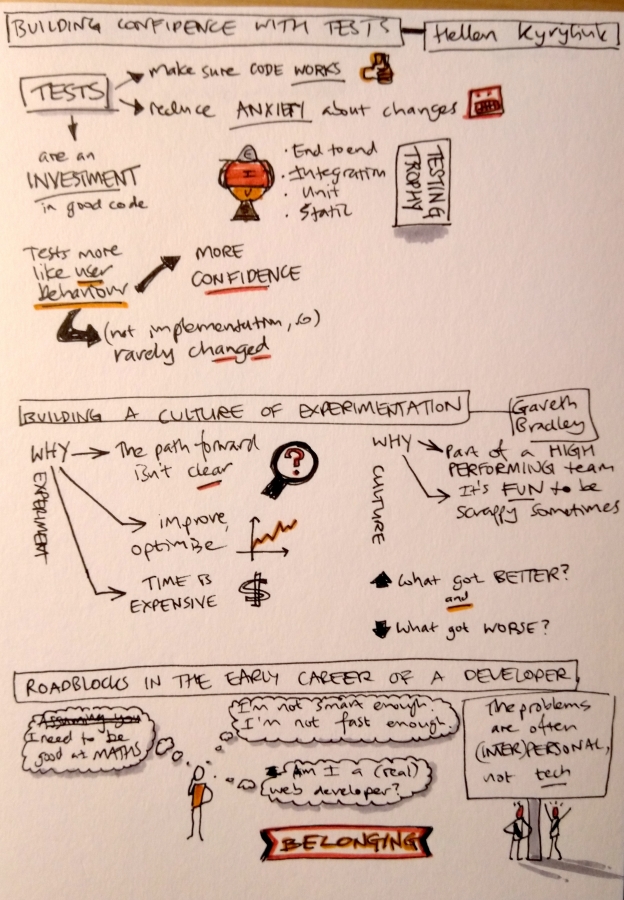 BUILDING CONFIDENCE WITH TESTS
Hellen Kyrychuk
TESTS
make sure CODE WORKS
reduce ANXIETY about changes
are an
INVESTMENT
in good code
E
I
U
· End to end
· Integration
· Unit
· Static
TESTING
TROPHY
Tests more
like user
behaviour
MORE
CONFIDENCE
(not implementation, so)
rarely changed
BUILDING A CULTURE OF EXPERIMENTATION
Gareth
Bradley
WHY
EXPERIMENT
The path forward
isn't clear
?
improve,
optimise
TIME IS
EXPENSIVE
$
WHY
CULTURE
Part of a HIGH
PERFORMING team
It's FUN to be
scrappy sometimes
What got BETTER?
and
What got WORSE?
ROADBLOCKS IN THE EARLY CAREER OF A DEVELOPER
Assuming you
I need to be
good at MATHS
I'm not smart enough.
I'm not fast enough
Am I a (real)
web developer?
BELONGING
The problems
are often
(INTER)PERSONAL,
not tech